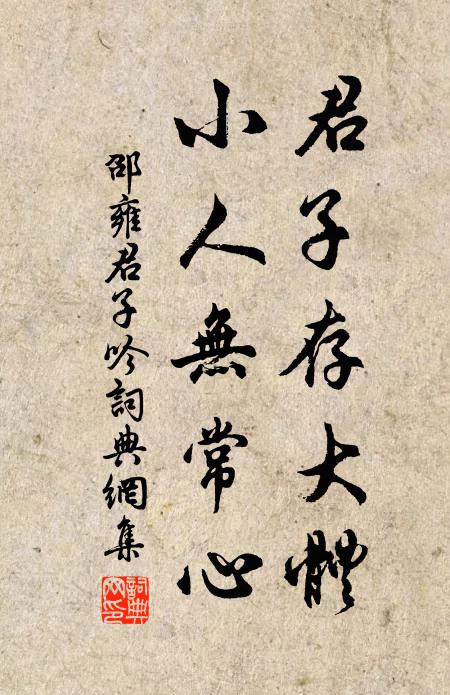 君子存大體
小人無常心
邵雍君子吟詞典網集
詞典網印